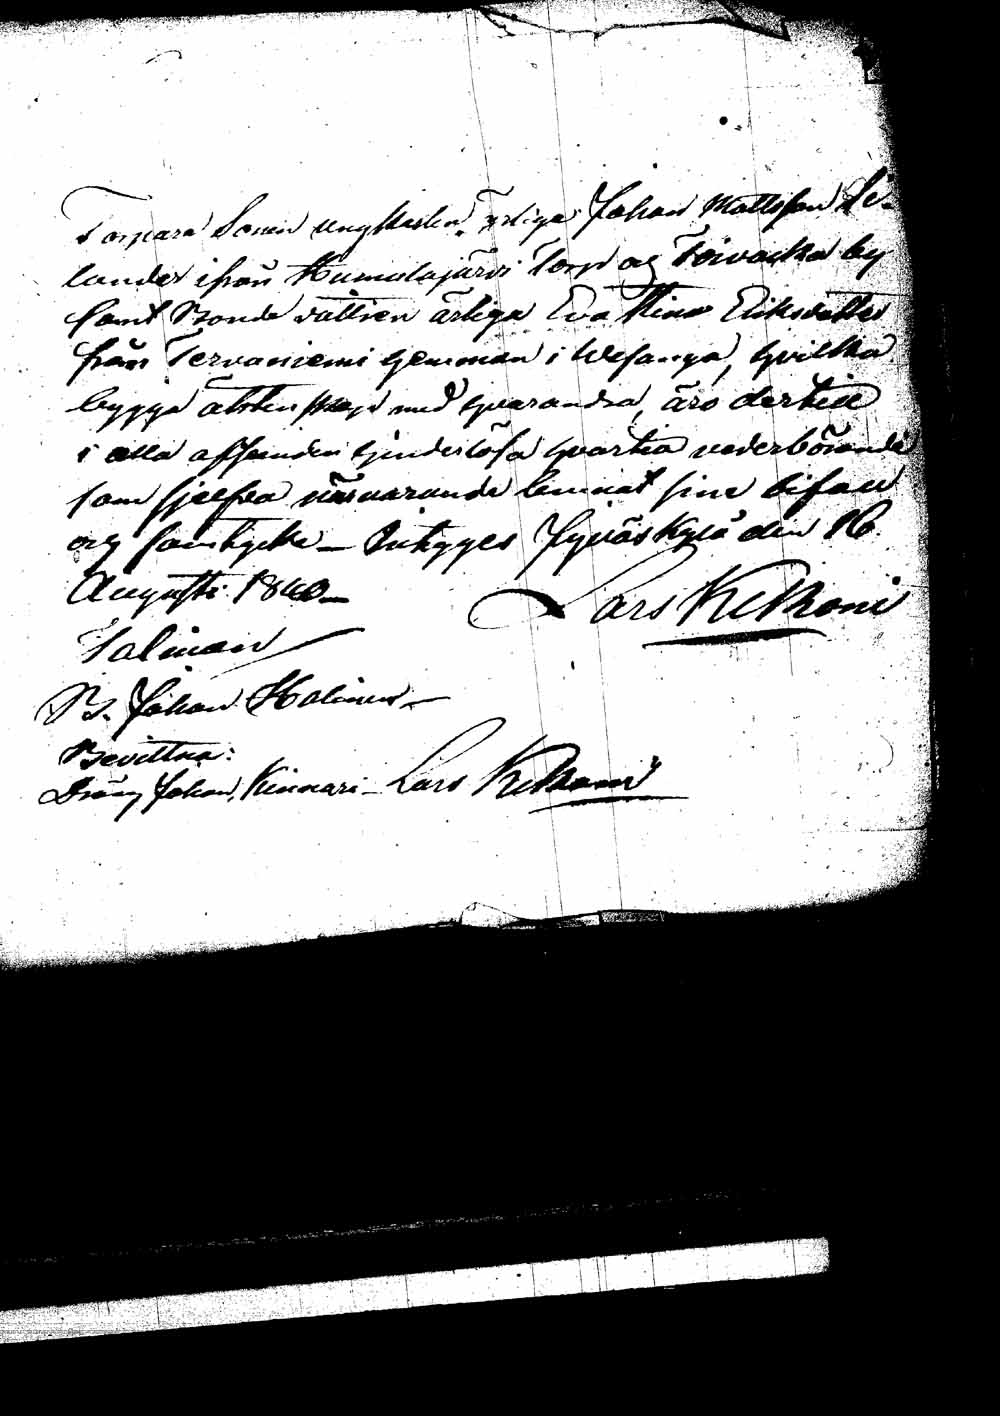 Torpare Sonen ungkarlen ärliga Johan Mattsson Se-
lander ifrån Humalajärvi Torp af Toivacka by
samt Bonde dottren ärliga Eva Stina Eriksdotter
från Tervaniemi hemman i Wesanga, hvilka
bygga äktenskap med hvarandra, äro dertill
i alla afseenden hinderlösa hvartill vederbörande
som sjelfva närvarande lemnat sine bifall
och samtycke – Intygges Jyväskylä den 16
Augusti 1840 –
Lars Kekkoni
Talman
B. Johan Halinen –
Bevittna:
Dräng Johan Kinnari – Lars Kekkoni